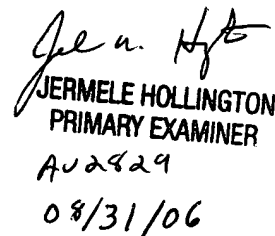 JERMELE HOLLINGTON
PRIMARY EXAMINER
AU2829
08/31/06